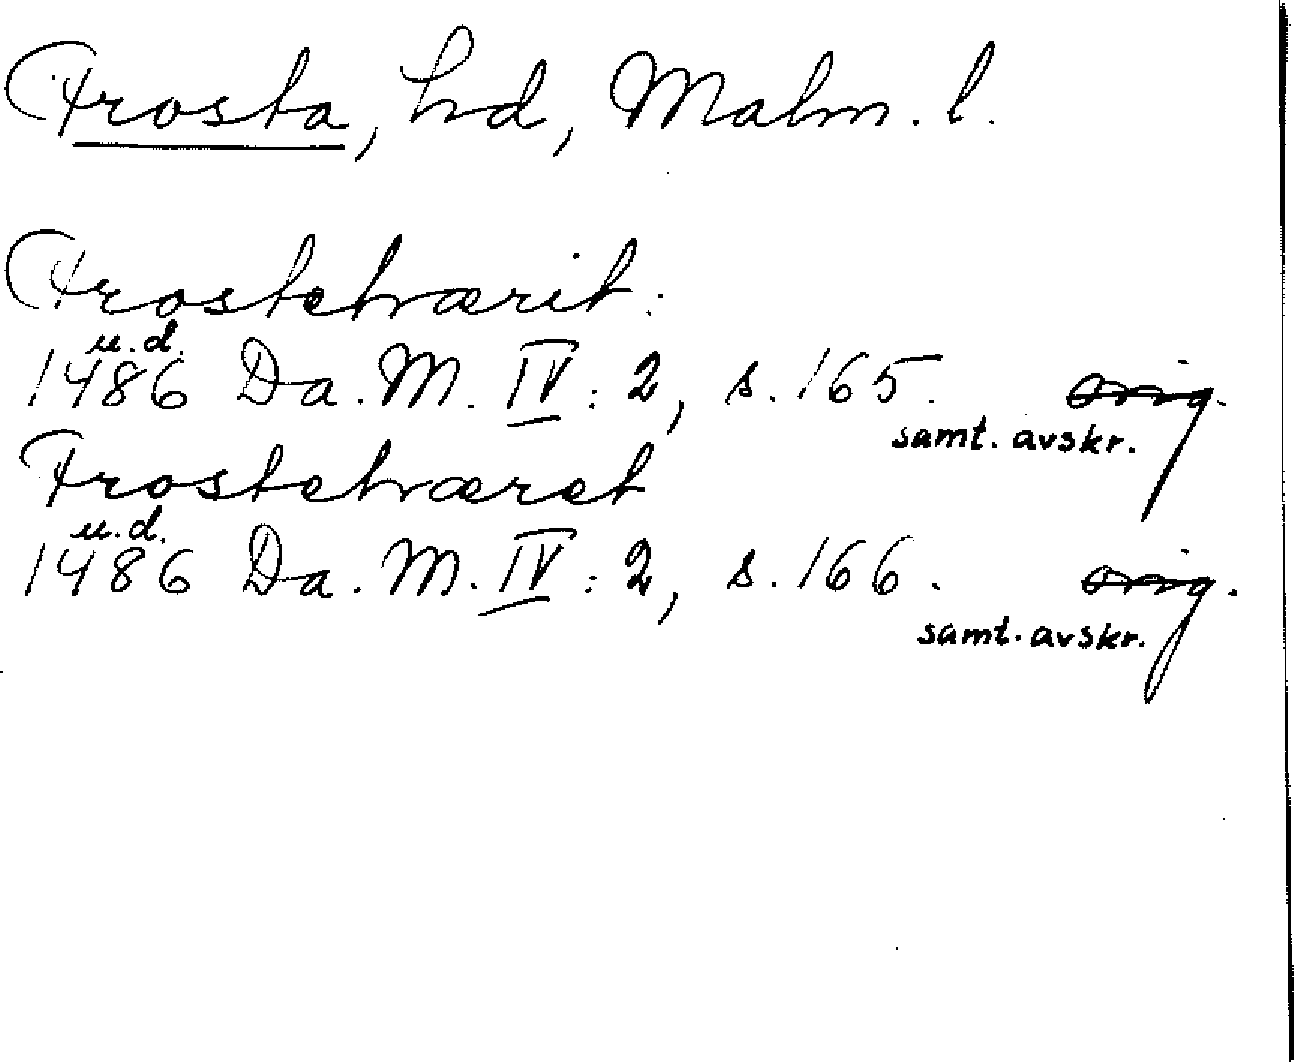 Frosta, hd, Malm. l.
Frostehærit.
u.d.
1486 Da. M. IV: 2, s. 165. orig.
samt. avskr.
Frostehæret
u.d.
1486 Da. M. IV: 2, s. 166. orig.
samt. avskr.